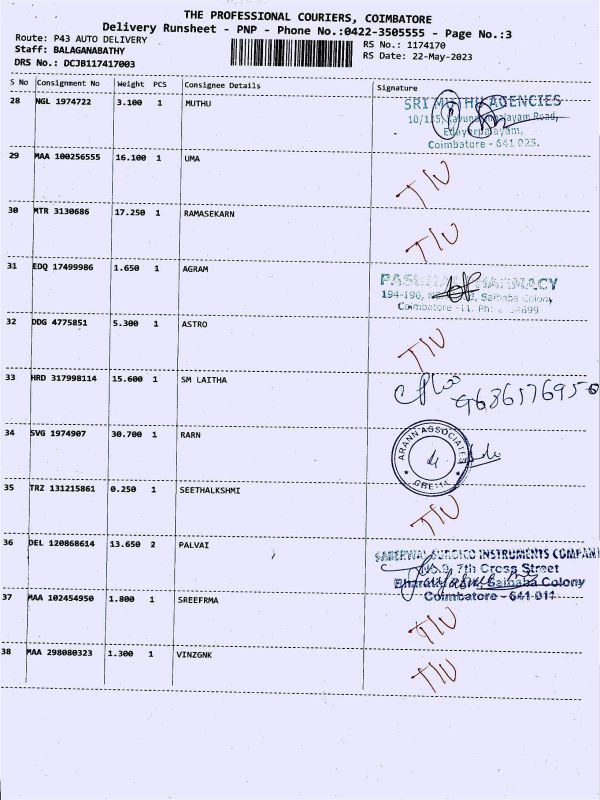 THE PROFESSIONAL COURIERS, COIMBATORE
Delivery Runsheet - PNP - Phone No.:0422-3505555 - Page No.:3
Route: P43 AUTO DELIVERY RS No.: 1174170
Staff: BALAGANABATHY RS Date: 22-May-2023
DRS No.: DCJB117417003
S No Consignment No Weight PCS Consignee Details Signature
28 NGL 1974722 3.100 1 MUTHU
SRI MUTHU AGENCIES
Coimbatore - 641 025.
29 MAA 100256555 16.100 1 UMA T/U
30 MTR 3130686 17.250 1 RAMASEKARN T/U
31 EDQ 17499986 1.650 1 AGRAM
194-196, Saibaba Colony
Coimbatore - 11. Ph:
32 DDG 4775851 5.300 1 ASTRO T/U
33 HRD 317998114 15.600 1 SM LAITHA 9686176950
34 SVG 1974907 30.700 1 RARN
ARANN ASSOCIATES
CBE-11
35 TRZ 131215861 0.250 1 SEETHALKSHMI T/U
36 DEL 120868614 13.650 2 PALVAI
SURGICO INSTRUMENTS COMPANI
No.9, 7th Cross Street
Saibaba Colony
Coimbatore - 641 011
37 MAA 102454950 1.800 1 SREEFRMA T/U
38 MAA 298080323 1.300 1 VINZGNK T/U